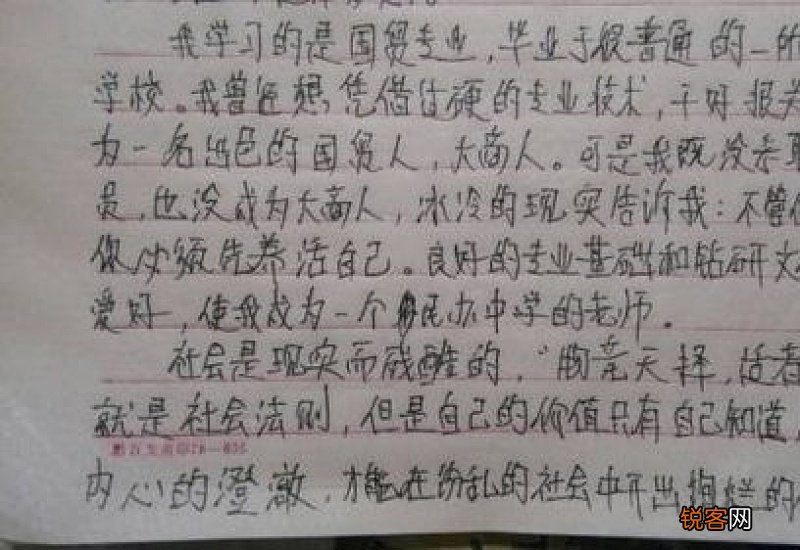 我学习的是国贸专业，毕业于很普通的一所
学校。我曾近想凭借过硬的专业技术，干好报关
为一名出色的国贸人，大商人。可是我既没录取
员，也没成为大商人，冰冷的现实告诉我：不管
你必须先养活自己。良好的专业基础和钻研文
爱好，使我成为一个民办中学的老师。
社会是现实而残酷的，“物竞天择，适者
就是社会法则，但是自己的价值只有自己知道，
内心的澄澈，才能在纷乱的社会中开出绚烂的
锐客网